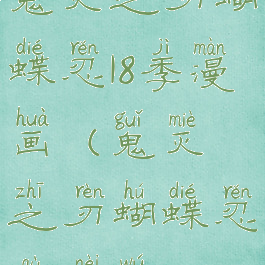 鬼灭之刃蝴
dié rén jì màn
蝶忍18季漫
huà guǐ miè
画（鬼灭
zhī rèn hú dié rén
之刃蝴蝶忍